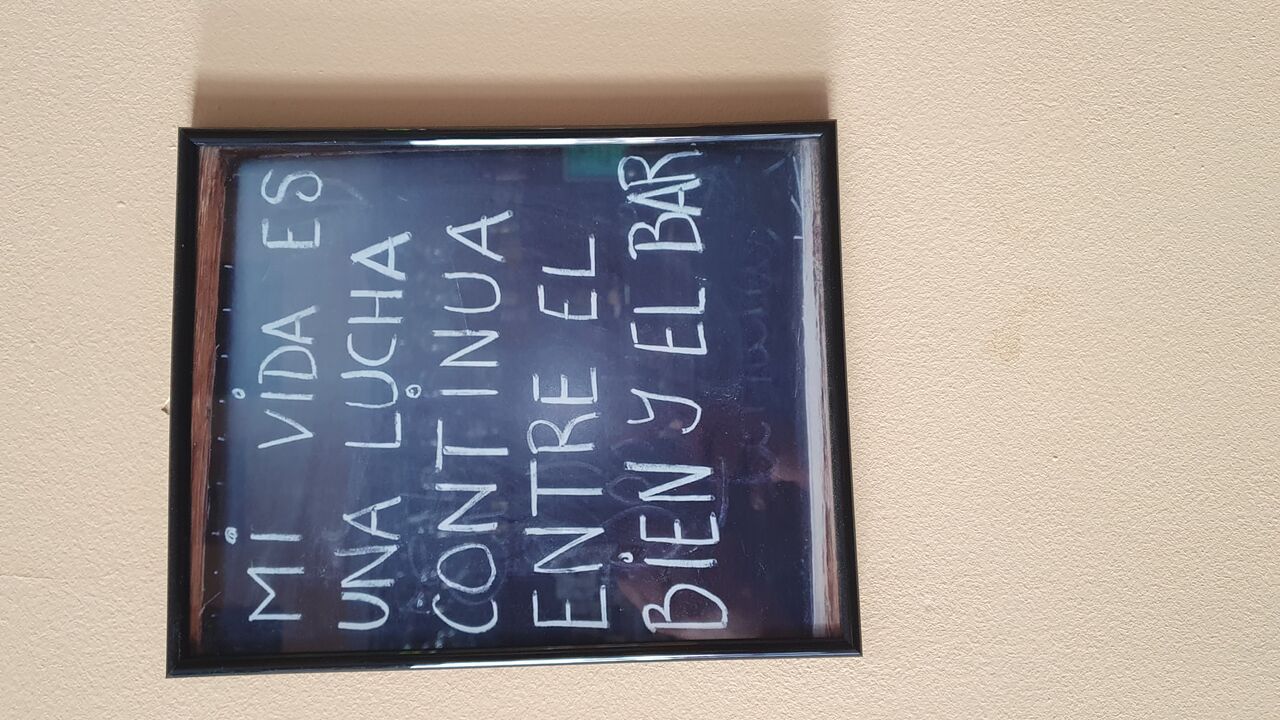 MI VIDA ES
UNA LUCHA
CONTINUA
ENTRE EL
BIEN Y EL BAR